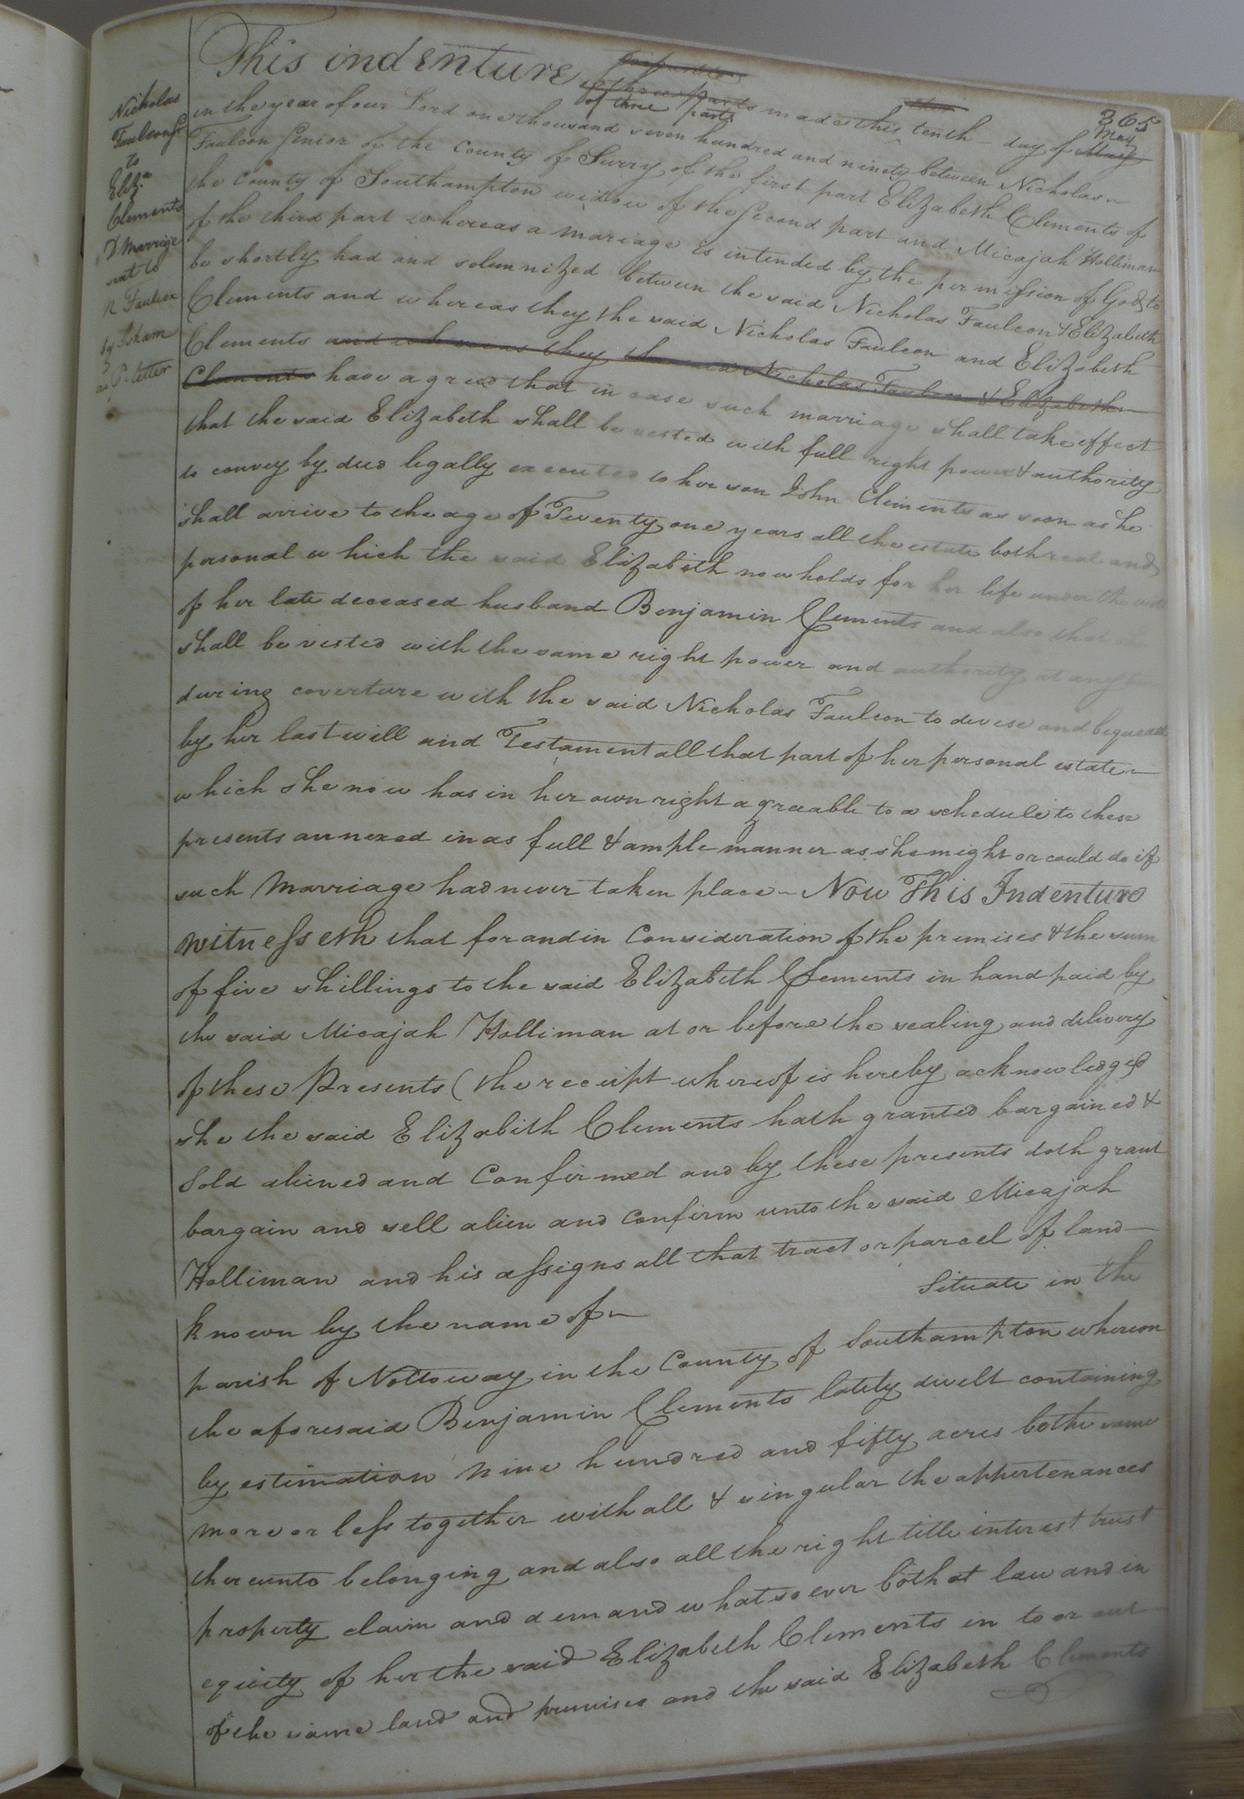 365
Nicholas
Faulcon Sr
to
Eliza
Clements
D Marriage
N Faulcon
by Isham
Letter
This indenture of three parts made this tenth day of May
in the year of our Lord one thousand seven hundred and ninety between Nicholas
Faulcon Senior of the County of Surry of the first part Elizabeth Clements of
the County of Southampton widow of the Second part and Micajah Holliman
of the third part whereas a mariage is intended by the permission of God to
be shortly had and solemnized between the said Nicholas Faulcon & Elizabeth
Clements and whereas they the said Nicholas Faulcon and Elizabeth
Clements and whereas they the said Nicholas Faulcon & Elizabeth
Clements have agreed that in case such marriage shall take effect
that the said Elizabeth shall be vested with full right power & authority
to convey by deed legally executed to her son John Clements as soon as he
shall arrive to the age of Twenty one years all the estate both real and
personal which the said Elizabeth now holds for her life under the will
of her late deceased husband Benjamin Clements and also that
shall be vested with the same right power and authority at any
during coverture with the said Nicholas Faulcon to devise and bequeath
by her last will and Testament all that part of her personal estate
which she now has in her own right agreeable to a schedule to these
presents annexed in as full & ample manner as she might or could do if
such Marriage had never taken place - Now This Indenture
witnesseth that for and in Consideration of the premises & the sum
of five shillings to the said Elizabeth Clements in hand paid by
the said Micajah Holliman at or before the sealing and delivery
of these Presents (the receipt whereof is hereby acknowledged
she the said Elizabeth Clements hath granted bargained &
Sold aliened and Confirmed and by these presents doth grant
bargain and sell alien and Confirm unto the said Micajah
Holliman and his assigns all that tract or parcel of land
known by the name of Situate in the
parish of Nottoway in the County of Southampton whereon
the aforesaid Benjamin Clements lately dwelt containing
by estimation nine hundred and fifty acres be the same
more or less together with all & singular the appertenances
thereunto belonging and also all the right title interest trust
property claim and demand whatsoever both at law and in
equity of her the said Elizabeth Clements in to or out
of the same land and premises and the said Elizabeth Clements